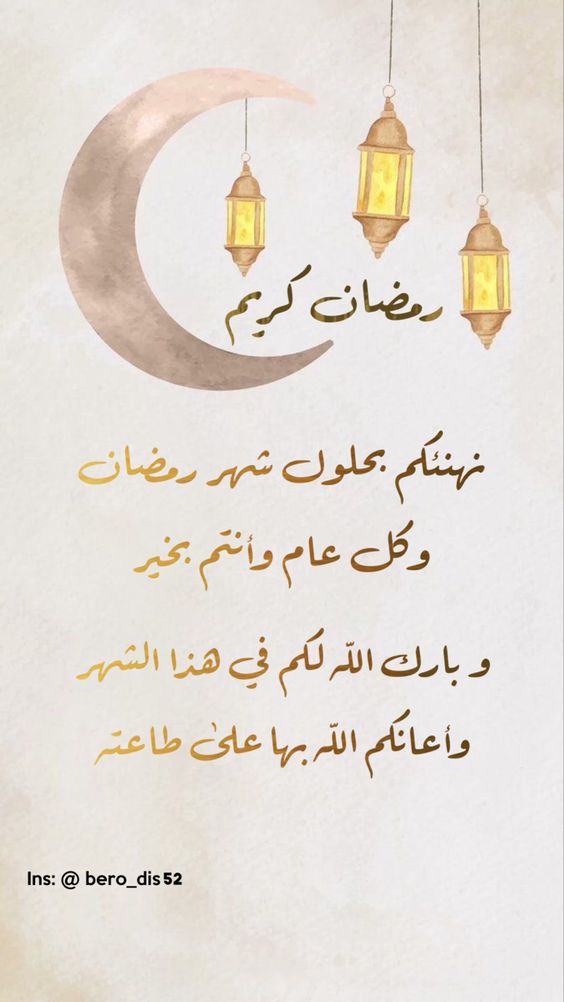 رمضان كريم
نهنئكم بحلول شهر رمضان
وكل عام وأنتم بخير
و بارك اللّه لكم في هذا الشهر
وأعانكم اللّه بها علىٰ طاعته
Ins: @ bero_dis52